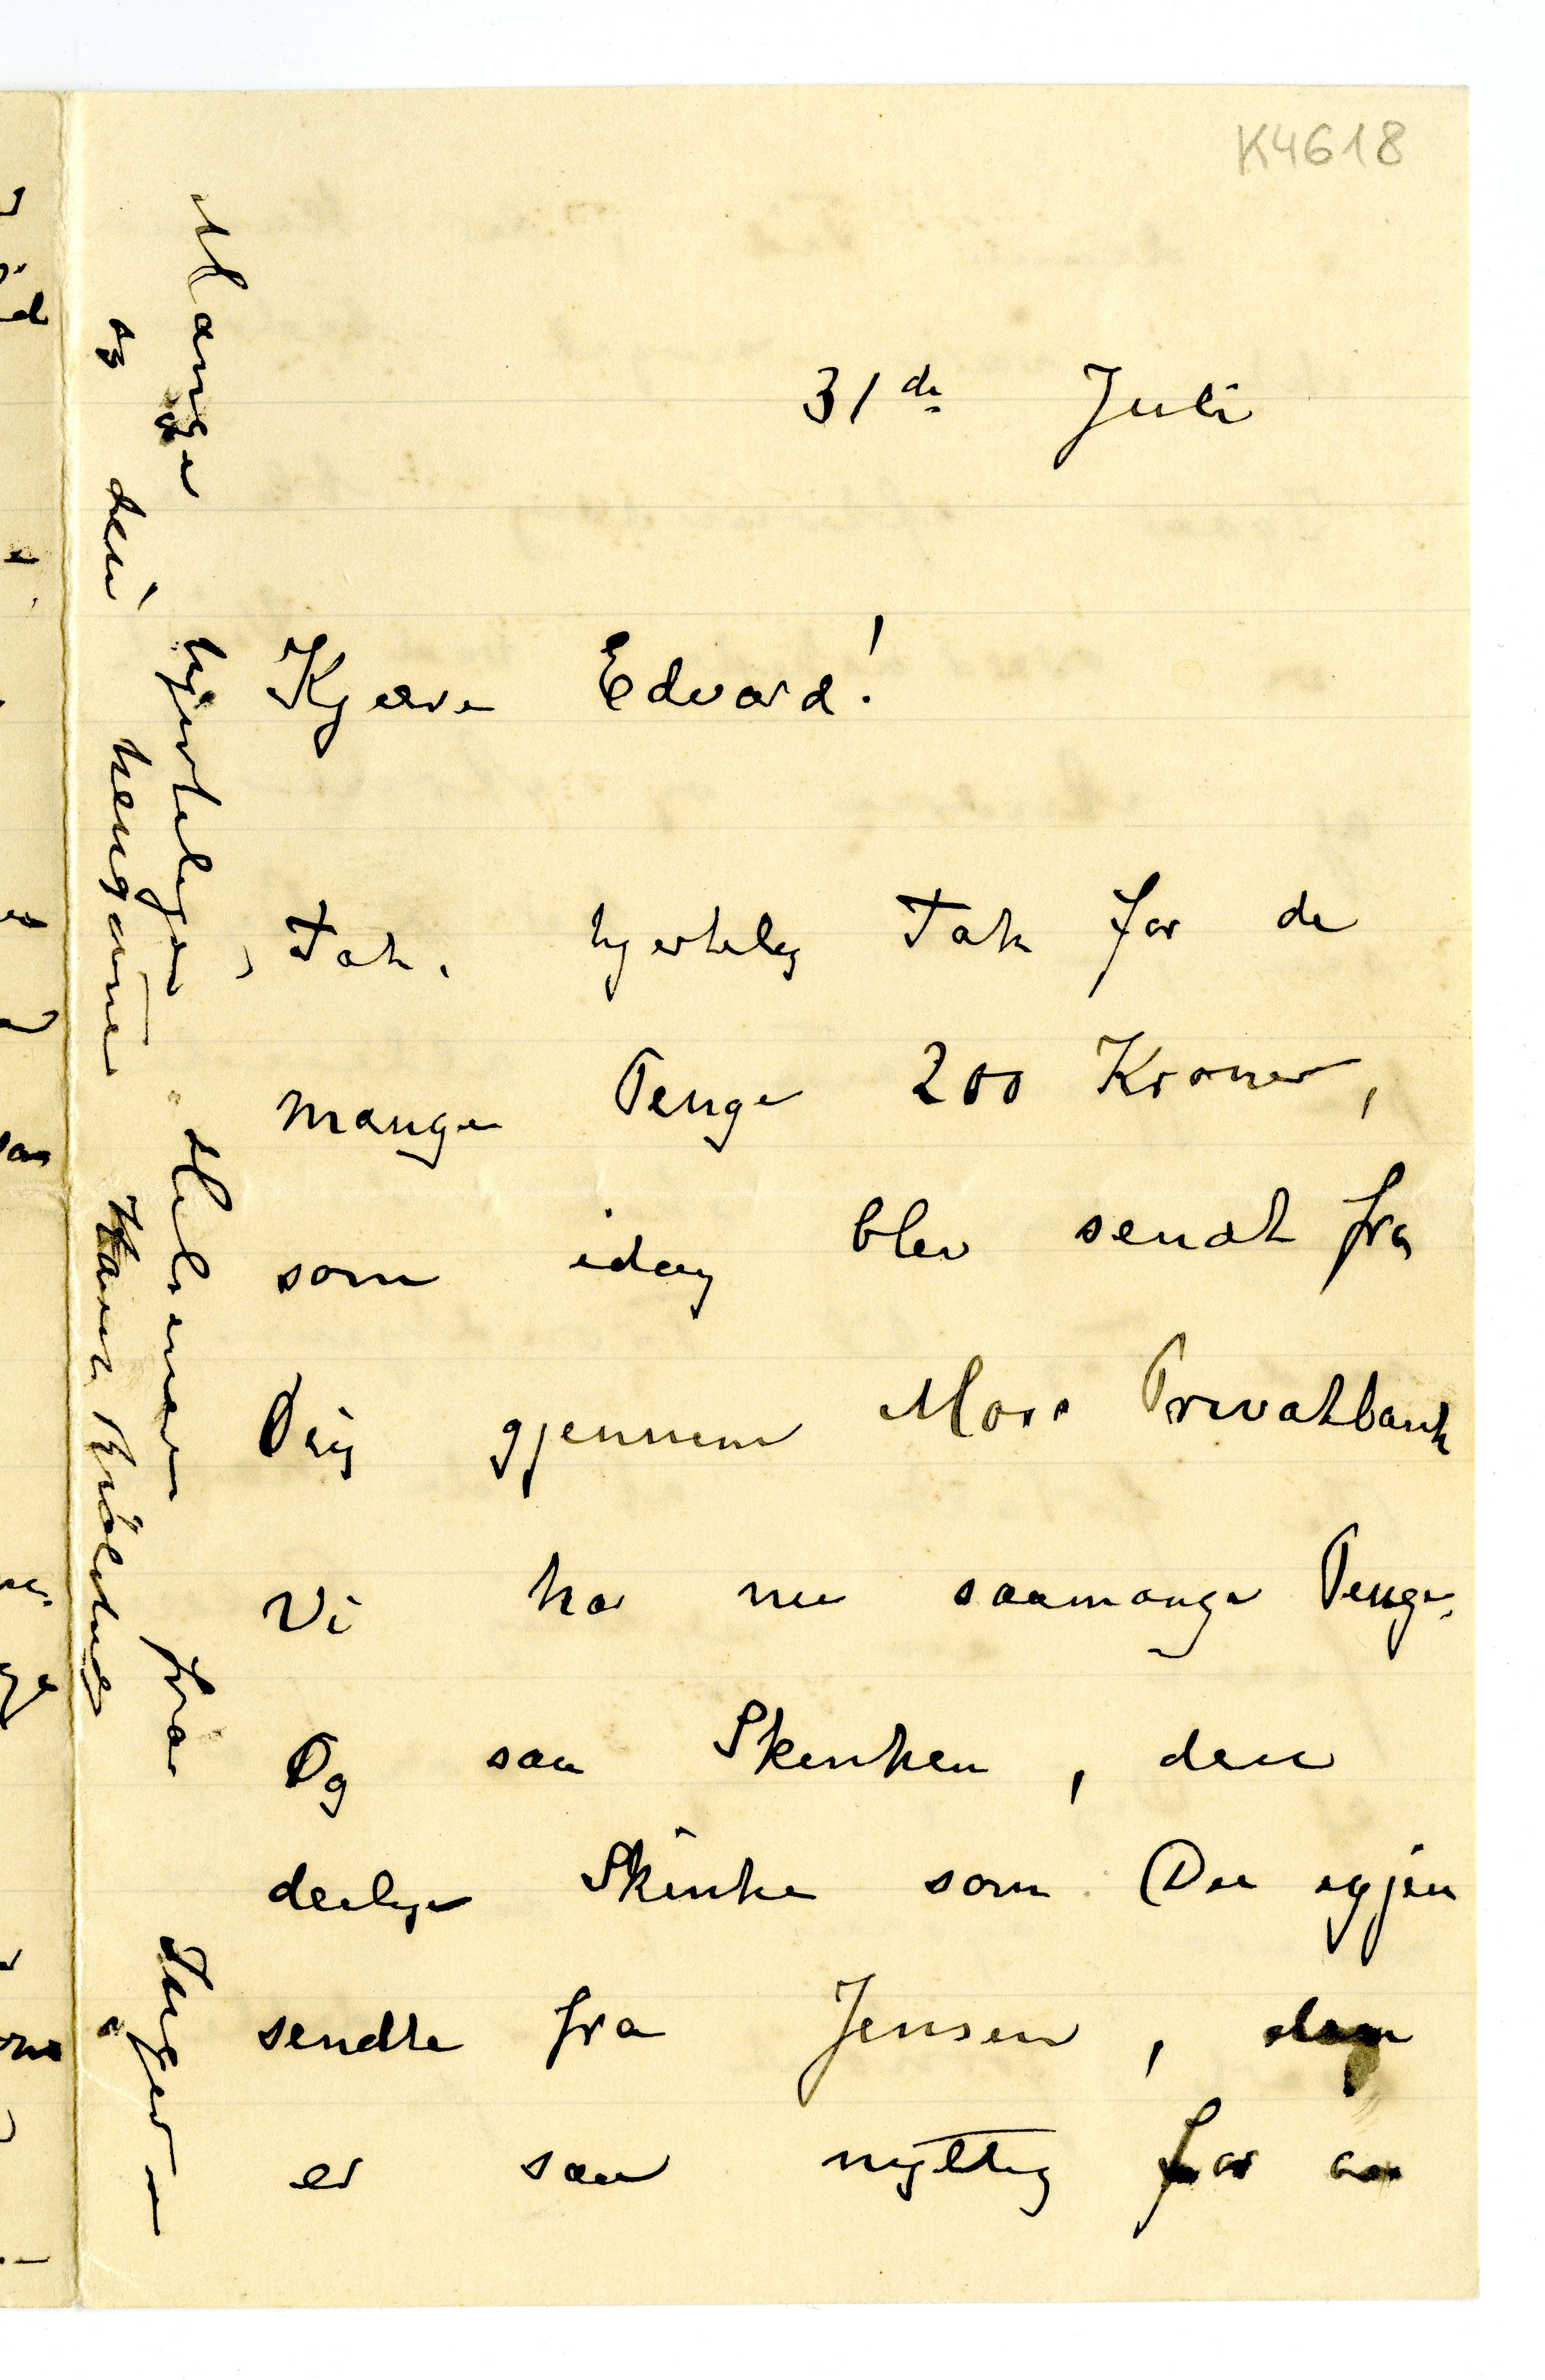 K4618
31de Juli
Kjære Edvard!
Tak, hjertelig Tak for de
mange Penge 200 Kroner,
som idag blev sendt fra
Dig gjennem Moss Privatbank
Vi har nu saamange Penge.
Og saa Skinken, den
deilige Skinke som Du igjen
sendte fra Jensen, den
er saa nyttig for os
Mange hjertelige Hilsener fra Inger
og den hengivne Karen Bjølstad